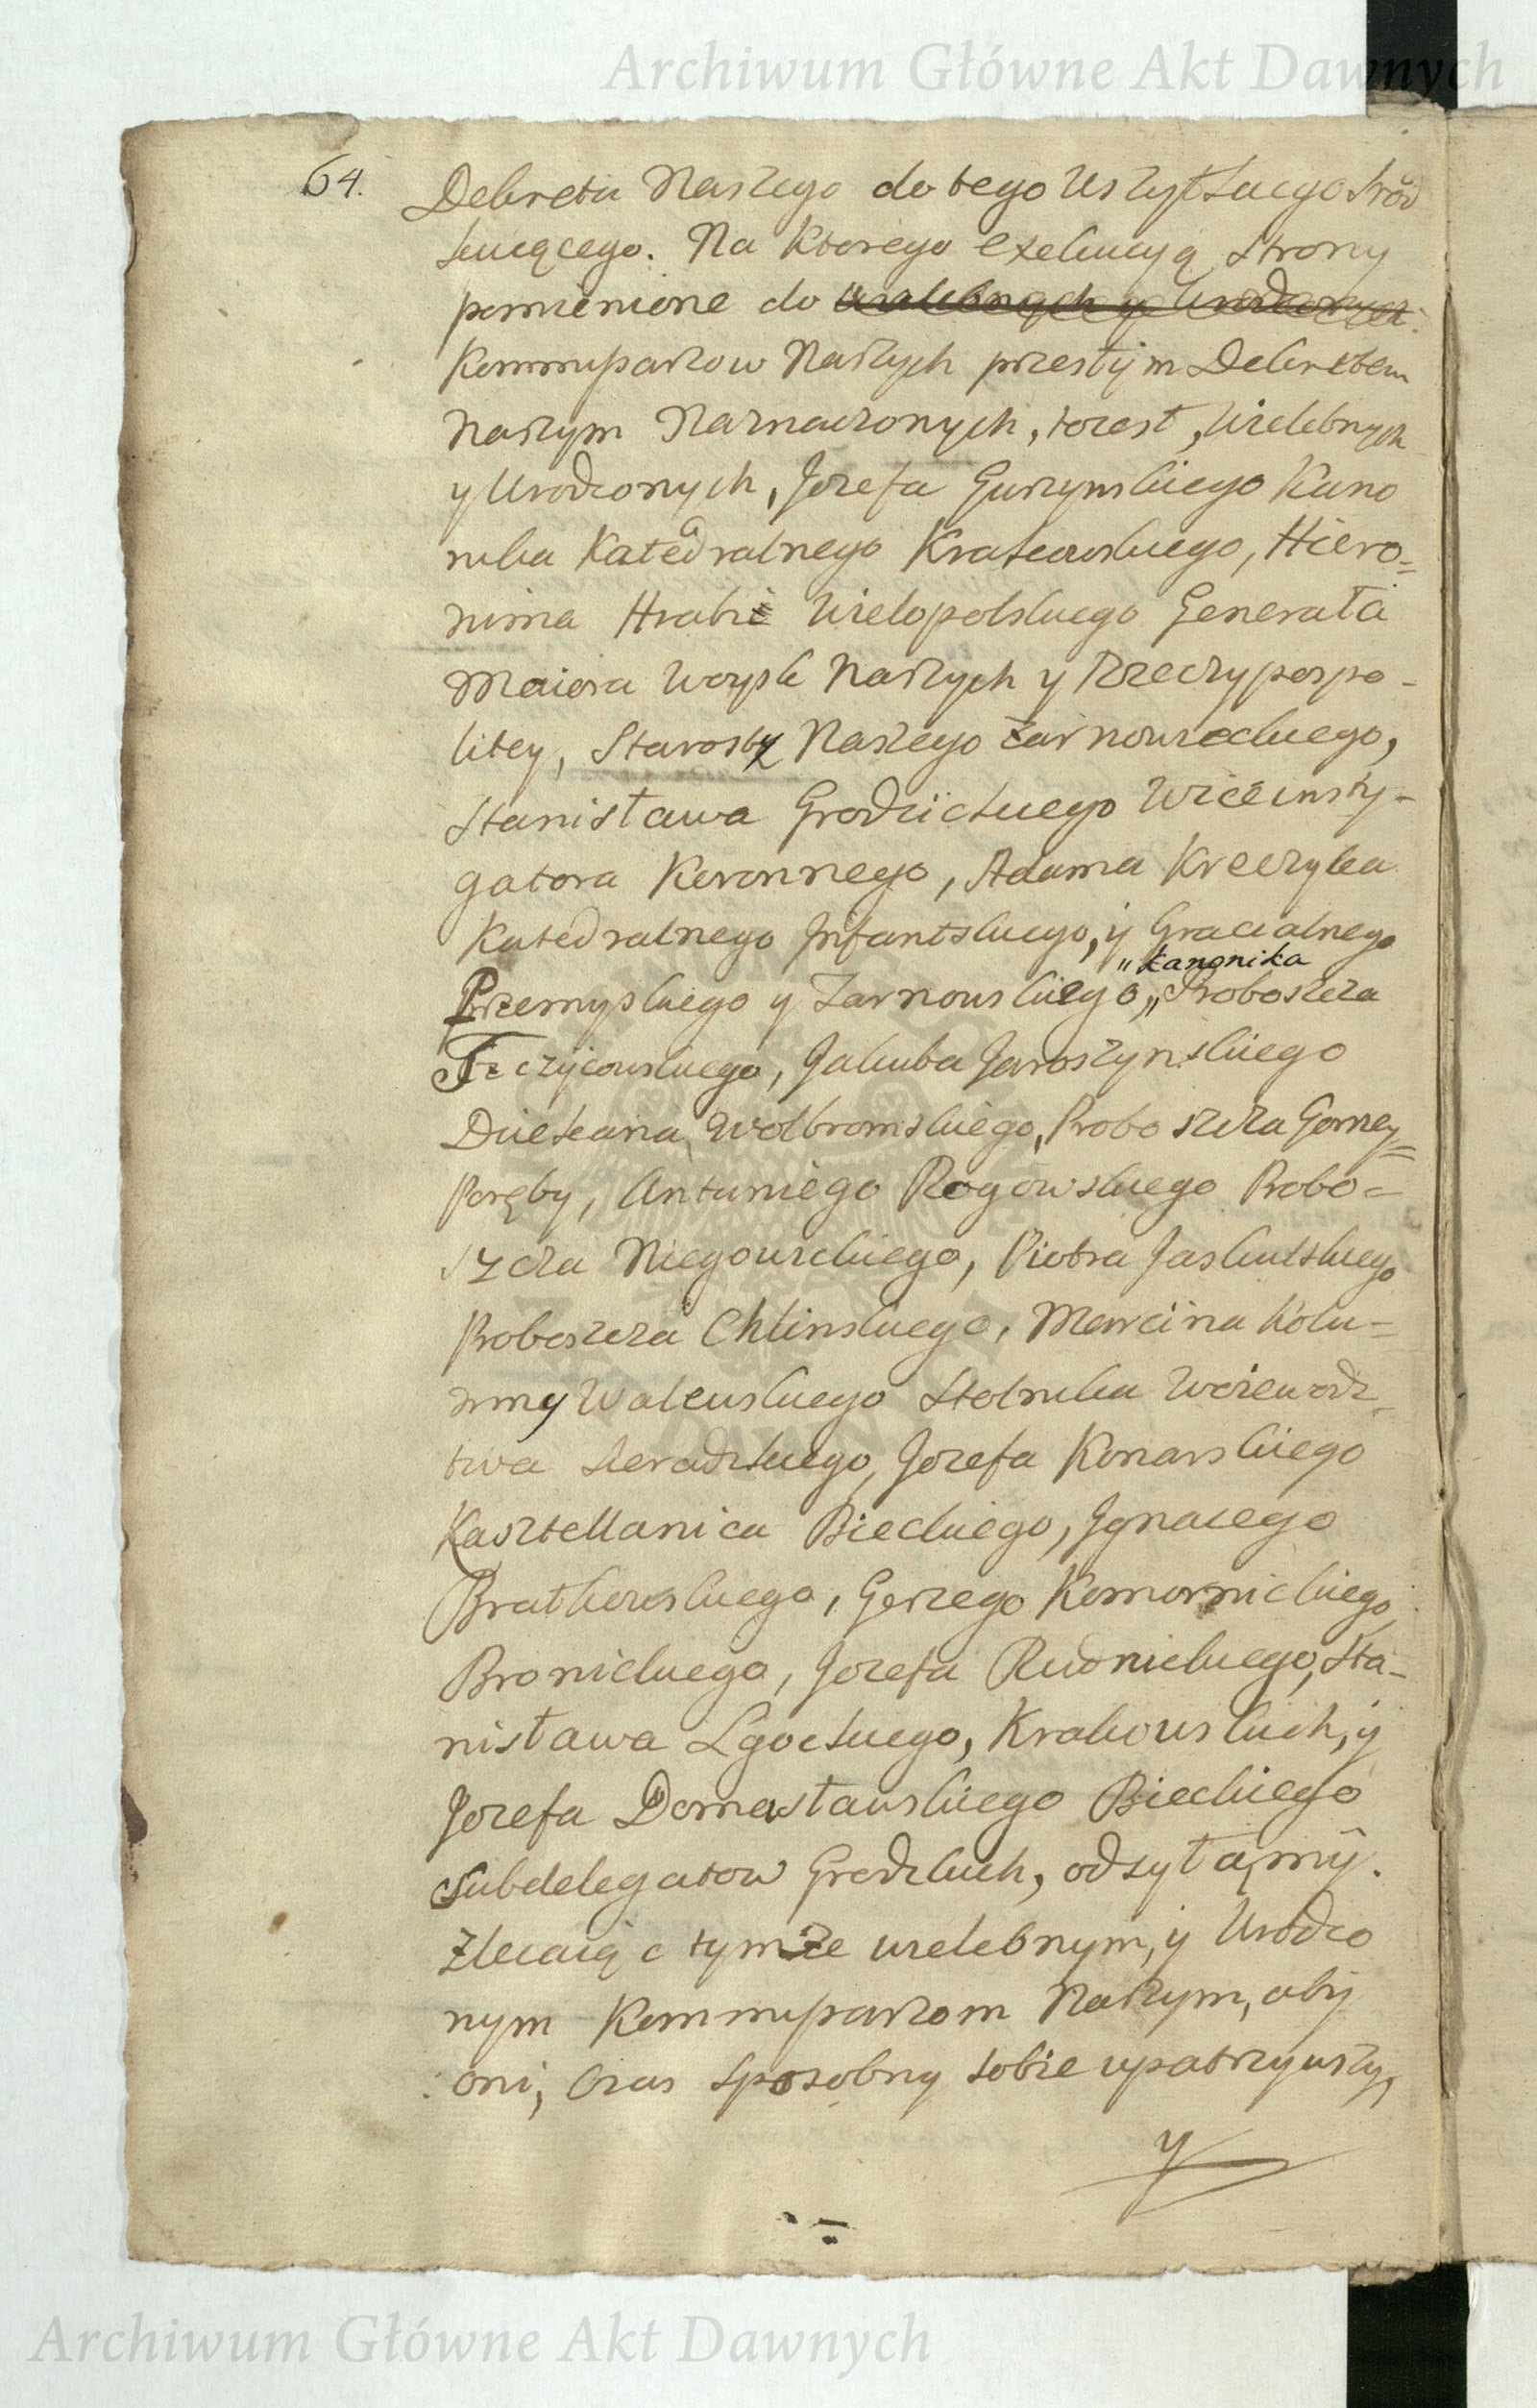 Archiwum Główne Akt Dawnych
64.
Dekretu Naszego do tego wszystkiego śrzod
kuiącego. Na ktorego exekucyą Strony
pomienione do Wielebnych y Urodzonych
Kommissarzow Naszych przestym Dekretem
Naszym Naznaczonych, toiest, Wielebnych
y Urodzonych, Jozefa Gurzynskiego Kano
nika Katedralnego Krakowskiego, Hiero=
nima Hrabi Wielopolskiego Generała
Maiora Woysk Naszych y Rzeczypospo-
litey, Starosty Naszego Żarnowieckiego,
Stanisława Grodzickiego Viceinsty-
gatora Koronnego, Adama Kreczyka
Katedralnego Inflantskiego, y Gracialnego
„ kanonika
Przemyskiego y Żarnowskiego „ Proboszcza
Tęczycowskiego, Jakuba Jaroszynskiego
Dziekana Wolbromskiego, Proboszcza Gorney=
Poręby, Antoniego Rogowskiego Probo=
szcza Niegowickiego, Piotra Jaskulskiego
Proboszcza Chlinskiego, Marcina Kolu=
mny Walewskiego Stolnika Woiewodz
twa Sieradzkiego, Jozefa Konarskiego
Kasztellanica Bieckiego, Jgnacego
Bratkowskiego, Jerzego Komornickiego,
Bronickiego, Jozefa Rudnickiego, Sta-
nisława Lgockiego, Krakowskich, y
Jozefa Domasławskiego Bieckiego
Subdelegatow Grodzkich, odsyłamy.
Zlecaiąc tymże wielebnym, y Urodzo
nym Kommissarzom Naszym, aby
oni, Czas sposobny sobie upatrzywszy,
y
Archiwum Główne Akt Dawnych